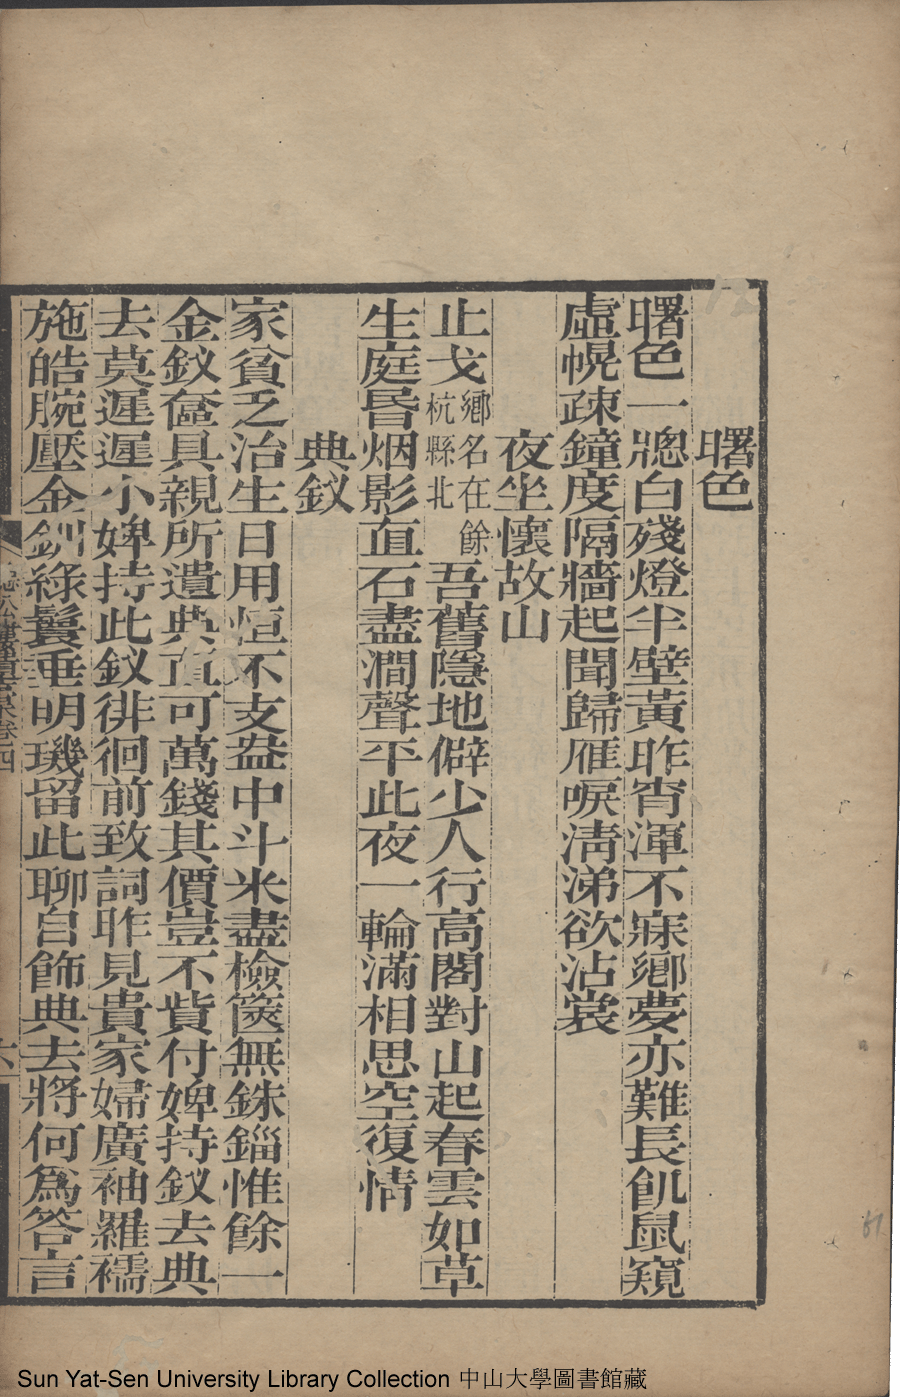 曙色
曙色一牕白殘燈半壁黃昨宵渾不寐鄉夢亦難長飢鼠窺
虛幌疎鐘度隔牆起聞歸雁唳淸涕欲沾裳
夜坐懷故山
止戈鄉名在餘杭縣北吾舊隱地僻少人行高閣對山起春雲如草
生庭昬烟影直石盡澗聲平此夜一輪滿相思空復情
典釵
家貧乏治生日用恒不支盎中斗米盡檢篋無銖錙惟餘一
金釵奩具親所遺典直可萬錢其價豈不貲付婢持釵去典
去莫遲遲小婢持此釵徘徊前致詞昨見貴家婦廣袖羅襦
施皓腕壓金釧綠鬟垂明璣留此聊自飾典去將何爲答言
卷四
六
Sun Yat-Sen University Library Collection 中山大學圖書館藏